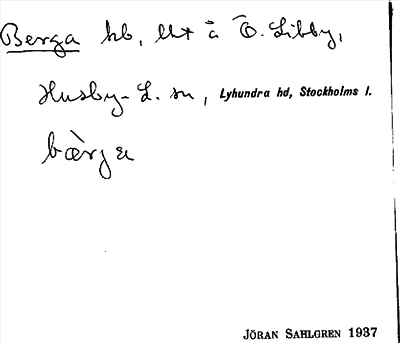 Berga hb, Utt å Ö. Libby,
Husby-L. sn, Lyhundra hd, Stockholms l.
bær̀ga
JÖRAN SAHLGREN 1937